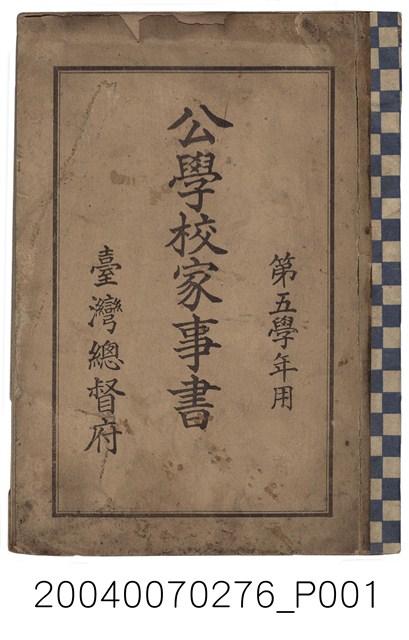 第五學年用
公學校家事書
臺灣總督府
20040070276_P001